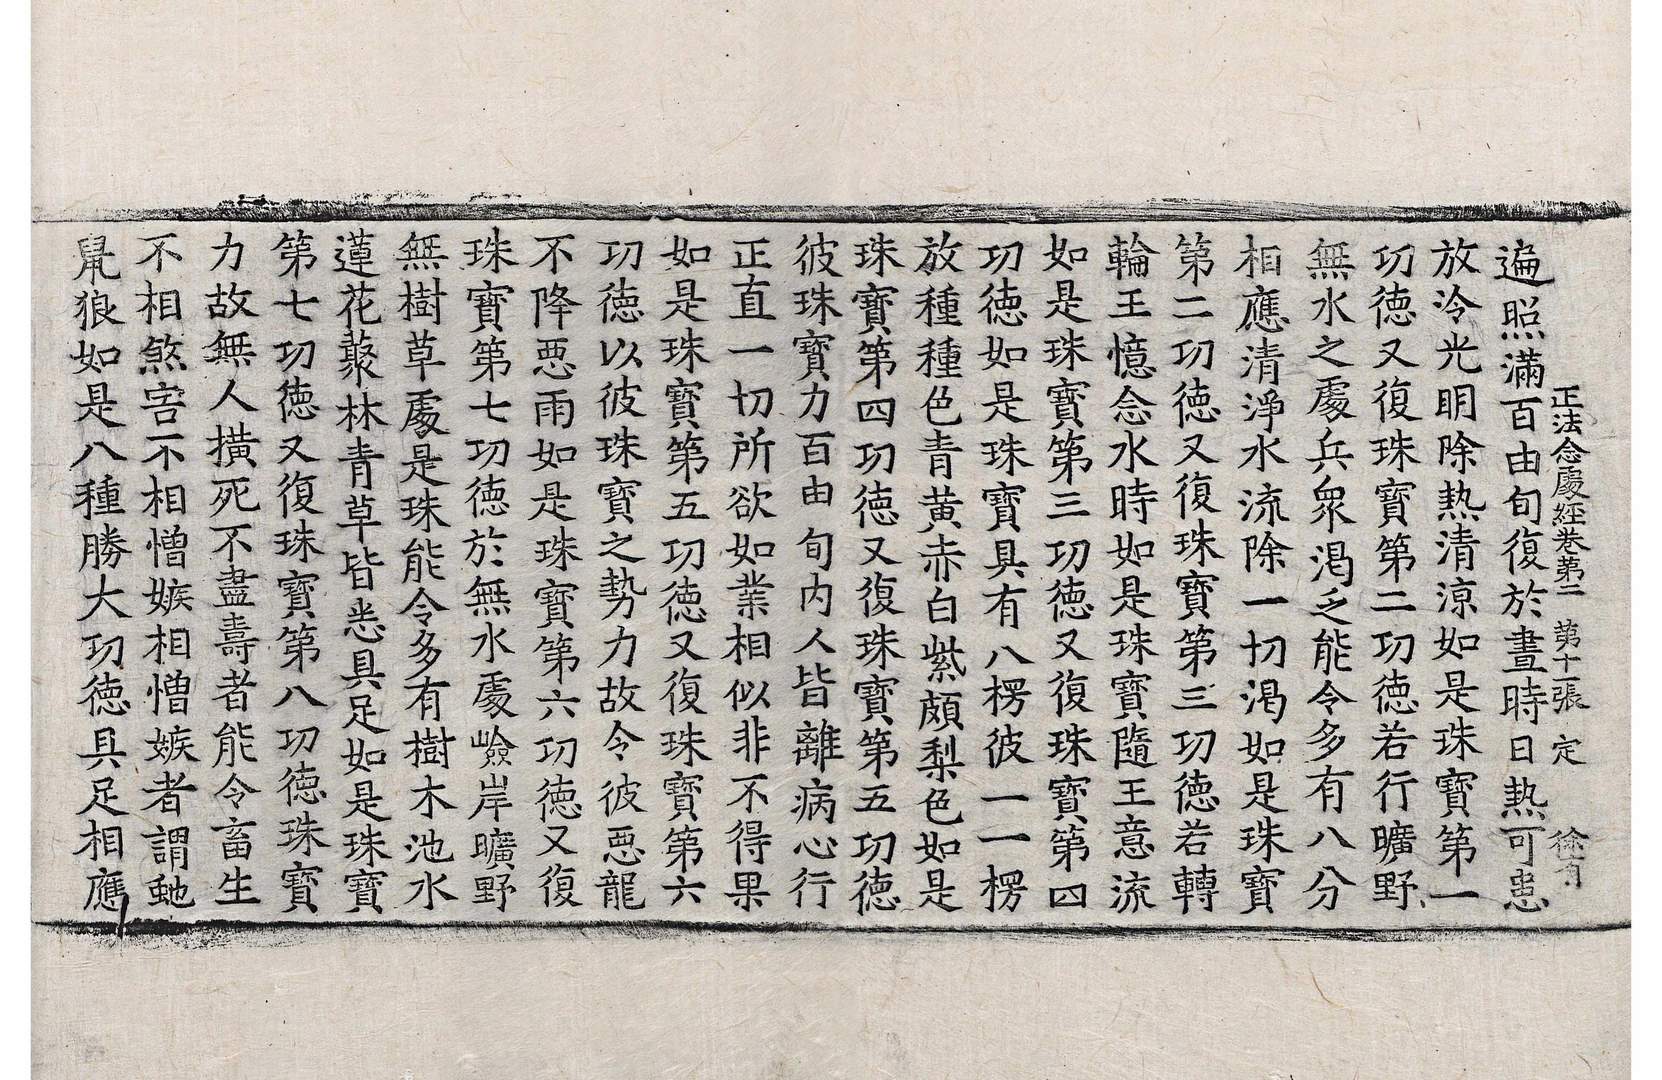 正法念處經卷第二　第十一張　定　徐有
遍照滿百由旬復於晝時日熱可患
放冷光明除熱清涼如是珠寶第一
功德又復珠寶第二功德若行曠野
無水之處兵衆渴乏能令多有八分
相應清淨水流除一切渴如是珠寶
第二功德又復珠寶第三功德若轉
輪王憶念水時如是珠寶隨王意流
如是珠寶第三功德又復珠寶第四
功德如是珠寶具有八楞彼一一楞
放種種色青黃赤白紫頗梨色如是
珠寶第四功德又復珠寶第五功德
彼珠寶力百由旬內人皆離病心行
正直一切所欲如業相似非不得果
如是珠寶第五功德又復珠寶第六
功德以彼珠寶之勢力故令彼惡龍
不降惡雨如是珠寶第六功德又復
珠寶第七功德於無水處嶮岸曠野
無樹草處是珠能令多有樹木池水
蓮花藂林青草皆悉具足如是珠寶
第七功德又復珠寶第八功德珠寶
力故無人橫死不盡壽者能令畜生
不相煞害不相憎嫉相憎嫉者謂虵
鼠狼如是八種勝大功德具足相應